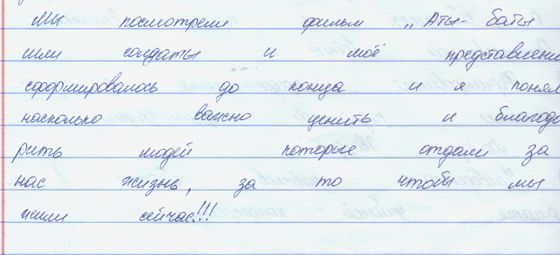 Мы посмотрели фильм „Аты- баты
шли солдаты и моё представлени
сформировалось до конца и я понял
насколько важно ценить и благода
рить людей которые отдали за
нас жизнь, за то чтобы мы
жили сейчас!!!